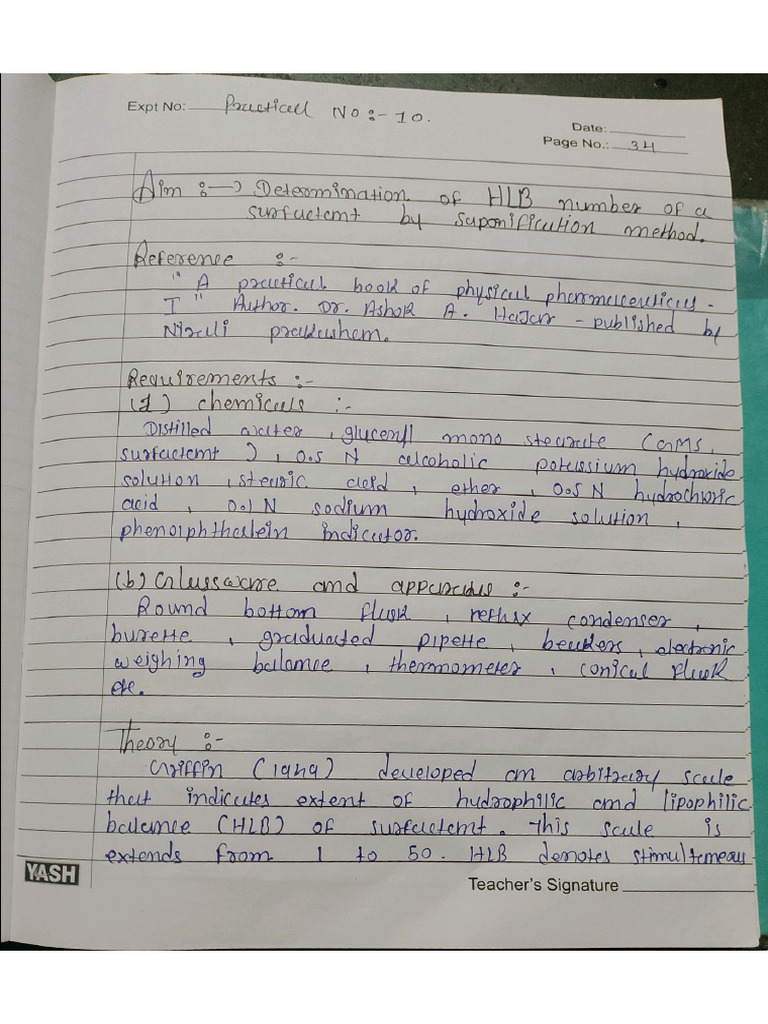 Expt No: Practicall No :- 10.
Date:
Page No.: 34
Aim :-→ Determination of HLB number of a
surfactant by saponification method.
Reference :-
" A practical book of physical pharmaceuticas -
I " Author. Dr. Ashok A. Hajare - published by
Nirali prakashan.
Requirements :-
(1) chemicals :-
Distilled water , glyceryl mono stearate (GMS,
surfactant ) , 0.5 N alcoholic potassium hydroxide
solution , stearic acid , ether , 0.5 N hydrochloric
acid , 0.1 N sodium hydroxide solution ,
phenolphthalein indicator.
(b) Glassware and apparatus :-
Round bottom flask , reflux condenser ,
burette , graduated pipette , beakers , electronic
weighing balance , thermometer , conical flask
etc.
Theory :-
Griffin (1949) developed an arbitrary scale
that indicates extent of hydrophilic and lipophilic
balance (HLB) of surfactant. This scale is
extends from 1 to 50. HLB denotes stimultaneau
YASH
Teacher's Signature